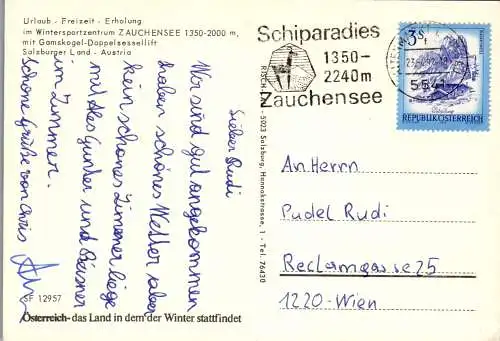 Urlaub - Freizeit - Erholung
im Wintersportzentrum ZAUCHENSEE 1350-2000 m,
mit Gamskogel-Doppelsessellift
Salzburger Land - Austria
Lieber Rudi
Wir sind gut angekommen
haben schönes Wetter aber
kein schönes Zimmer liege
mit Alex Gunter und
im Zimmer.
Schöne Grüße von Chris
SF 12957
Österreich - das Land in dem der Winter stattfindet
5023 Salzburg, Hannakstrasse, 1 - Tel. 76430
Schiparadies
1350-
2240m
Zauchensee
5541
3S
REPUBLIK ÖSTERREICH
An Herrn
Pudel Rudi
Reclamgasse 25
1220-Wien